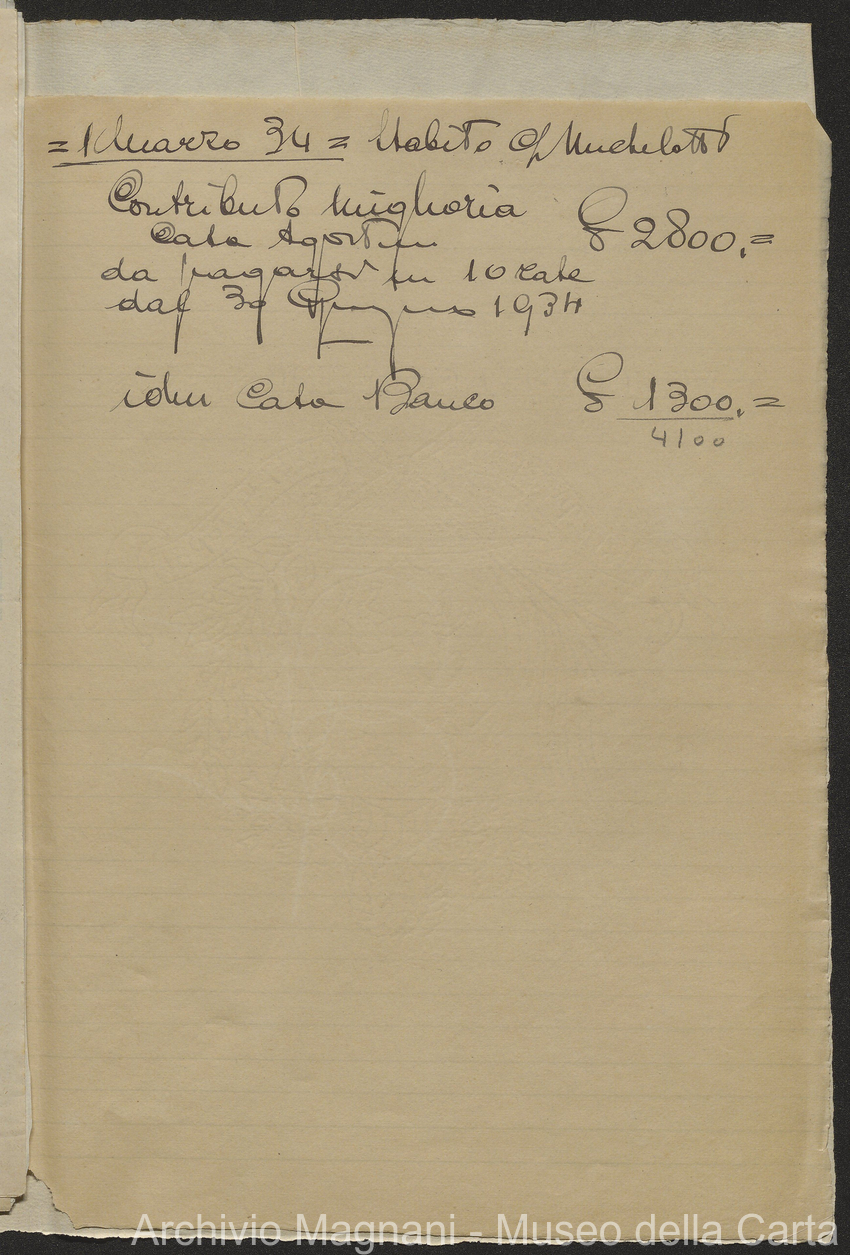 = 1 Marzo 34 = Stabilito Michelotti
Contributo Miglioria
Casa Agostini £ 2800.=
da pagarsi in 10 rate
dal 30 Giugno 1934
idem Casa Banco £ 1300.=
4100
Archivio Magnani - Museo della Carta